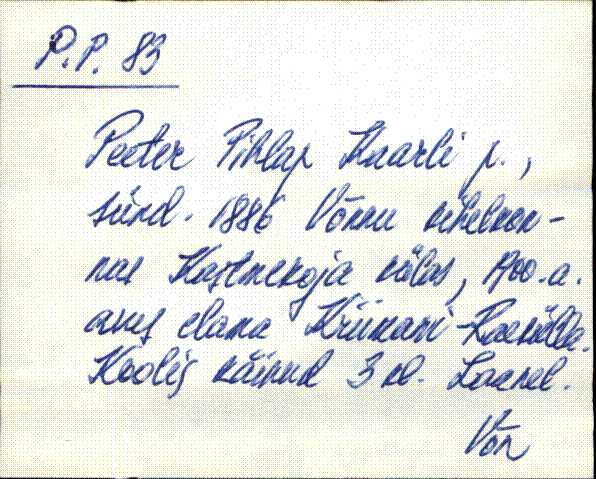 P.P. 83
Peeter Pihlap Kaarli p.,
sünd. 1886 Võnnu kihelkon-
nas Kastmekoja külas, 1900.a.
asus elama Kriimani Raeküla.
Koolis käinud 3 kl. Laanel.
Võn